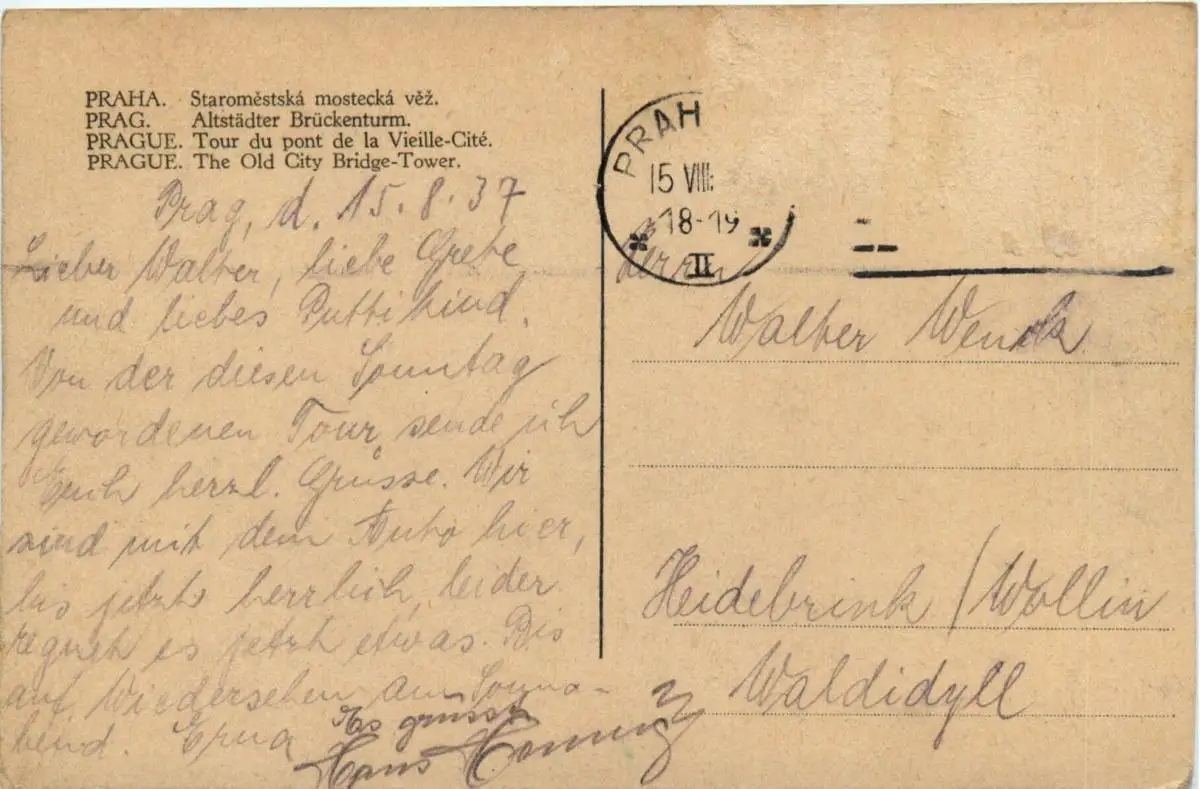 PRAHA. Staroměstská mostecká věž.
PRAG. Altstädter Brückenturm.
PRAGUE. Tour du pont de la Vieille-Cité.
PRAGUE. The Old City Bridge-Tower.
Prag, d. 15.8.37
Lieber Walter, liebe Grete
und liebes Puttikind.
Von der diesen Sonntag
gewordenen Tour sende ich
Euch herzl. Grüsse. Wir
sind mit dem Auto hier,
bis jetzt herrlich, leider
regnet es jetzt etwas. Bis
auf Wiedersehen am Sonna-
bend. Erna
Es grüsst
Hans
PRAH
15 VIII:
18-19
II
Herrn
Walter
Heidebrink / Wollin
Waldidyll